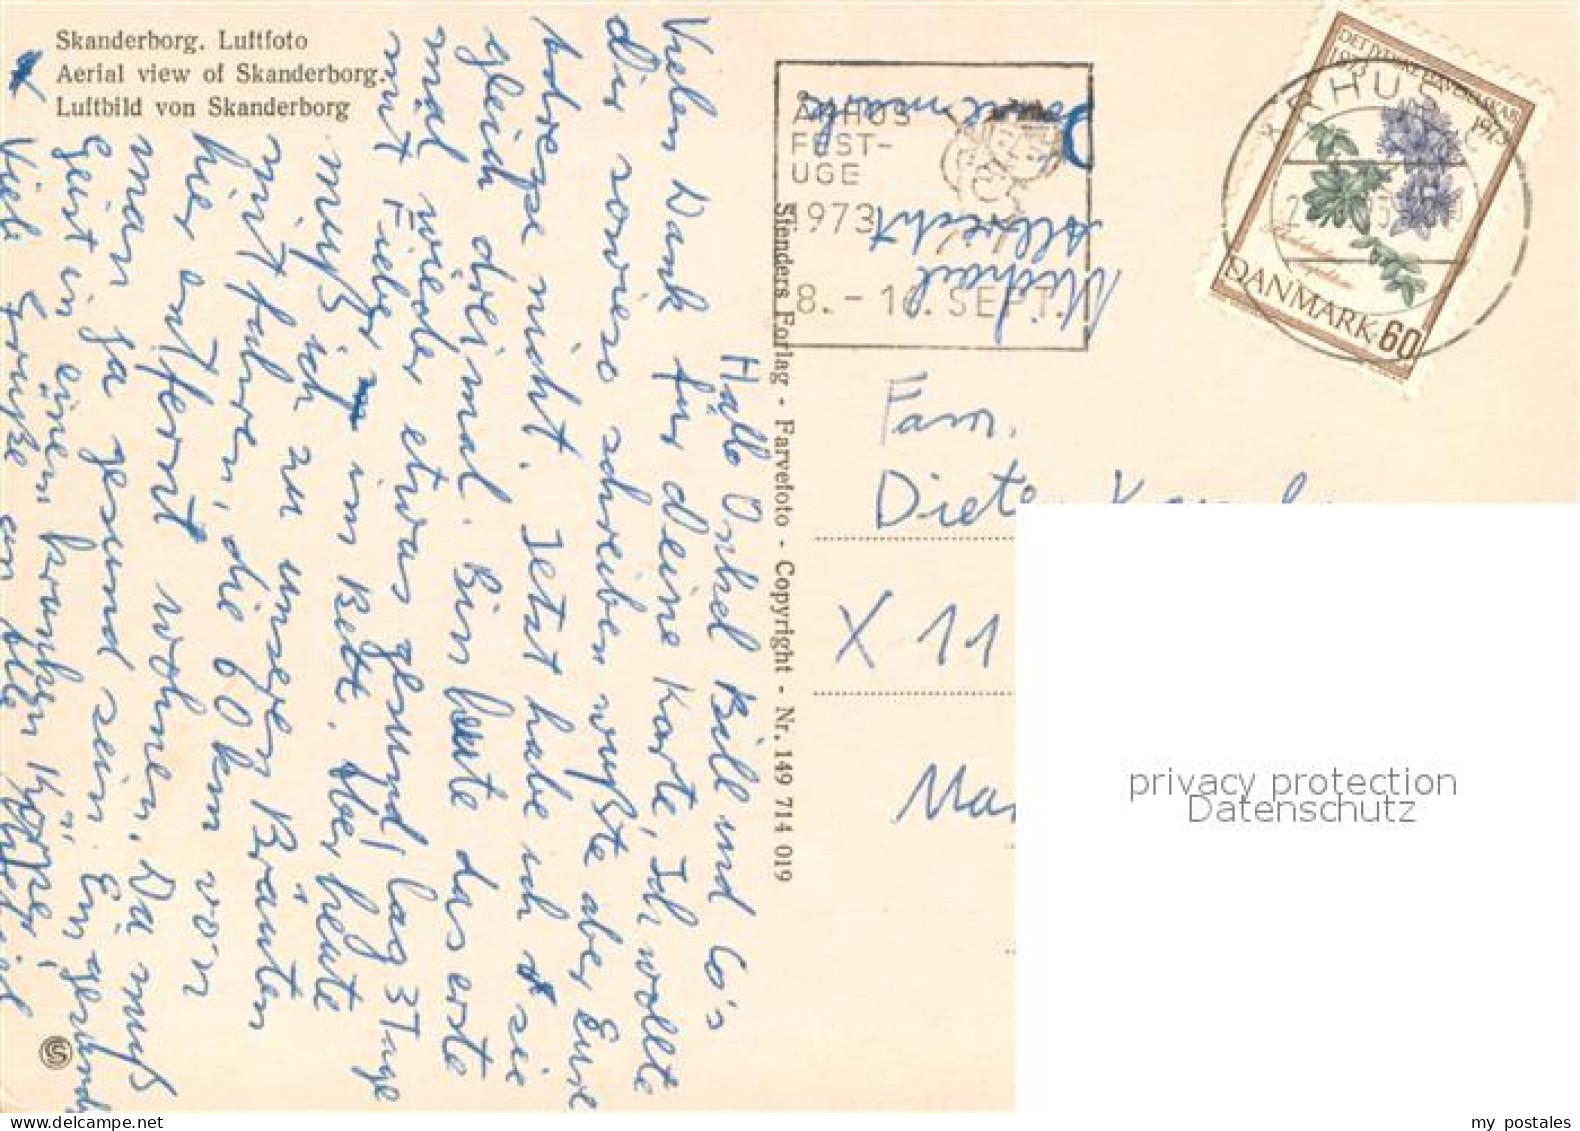 Skanderborg. Luftfoto
Aerial view of Skanderborg.
Luftbild von Skanderborg
Hallo Onkel Bill und Co's
Vielen Dank für deine Karte, Ich wollte
dir sowieso schreiben wußte aber Eure
Adresse nicht. Jetzt habe ich sie
gleich dreimal. Bin heute das erste
mal wieder etwas gesund, lag 3 Tage
mit Fieber im Bett. Aber heute
muß ich zu unseren Bräuten
mit fahren, die 60 km von
hier entfernt wohnen. Da muß
man ja gesund sein. Ein gesunder
Geist in einem kranken Körper!
Viele Grüße an alle
Stenders Forlag - Farvefoto - Copyright - Nr. 149 714 019
ÅRHUS
FEST-
UGE
1973
8. - 16. SEPT.
Michael
Albrecht
Dänemark
ÅRHUS C
1873
1973
DANMARK 60
Fam.
Dieter
X 11
privacy protection
Datenschutz
my postales